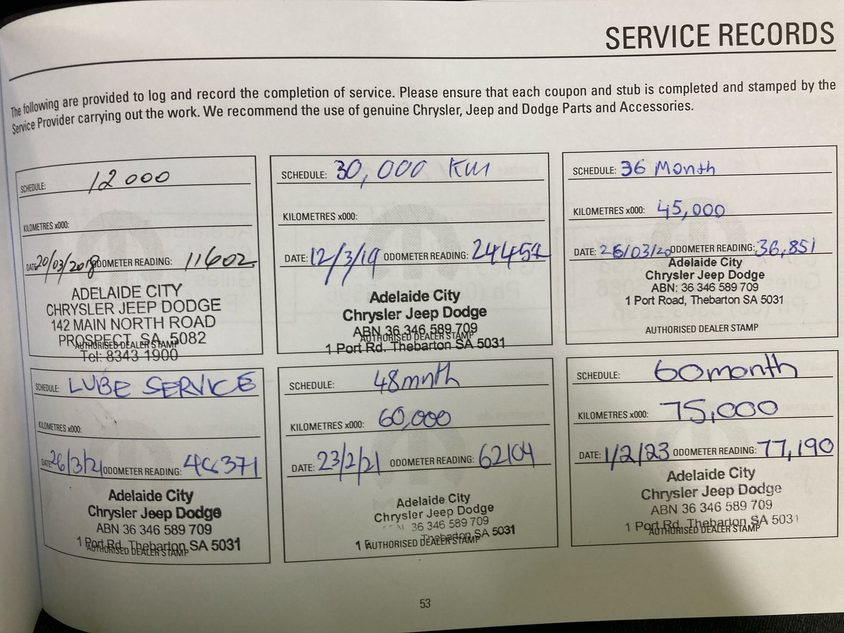 SERVICE RECORDS
The following are provided to log and record the completion of service. Please ensure that each coupon and stub is completed and stamped by the
Service Provider carrying out the work. We recommend the use of genuine Chrysler, Jeep and Dodge Parts and Accessories.
SCHEDULE: 12 000
KILOMETRES x000:
DATE: 20/03/2018 ODOMETER READING: 11602
ADELAIDE CITY
CHRYSLER JEEP DODGE
142 MAIN NORTH ROAD
PROSPECT SA 5082
AUTHORISED DEALER STAMP
Tel: 8343 1900
SCHEDULE: 30,000 KM
KILOMETRES x000:
DATE: 12/3/19 ODOMETER READING: 24457
Adelaide City
Chrysler Jeep Dodge
ABN 36 346 589 709
AUTHORISED DEALER STAMP
1 Port Rd, Thebarton SA 5031
SCHEDULE: 36 Month
KILOMETRES x000: 45,000
DATE: 26/03/20 ODOMETER READING: 36,851
Adelaide City
Chrysler Jeep Dodge
ABN: 36 346 589 709
1 Port Road, Thebarton SA 5031
AUTHORISED DEALER STAMP
SCHEDULE: LUBE SERVICE
KILOMETRES x000:
DATE: 26/3/21 ODOMETER READING:
Adelaide City
Chrysler Jeep Dodge
ABN 36 346 589 709
1 Port Rd, Thebarton SA 5031
AUTHORISED DEALER STAMP
SCHEDULE: 48mnth
KILOMETRES x000: 60,000
DATE: 23/2/21 ODOMETER READING: 62104
Adelaide City
Chrysler Jeep Dodge
36 346 589 709
1 Thebarton, SA 5031
AUTHORISED DEALER STAMP
SCHEDULE: 60month
KILOMETRES x000: 75,000
DATE: 1/2/23 ODOMETER READING: 77,190
Adelaide City
Chrysler Jeep Dodge
ABN 36 346 589 709
1 Port Rd, Thebarton, SA 5031
AUTHORISED DEALER STAMP
53